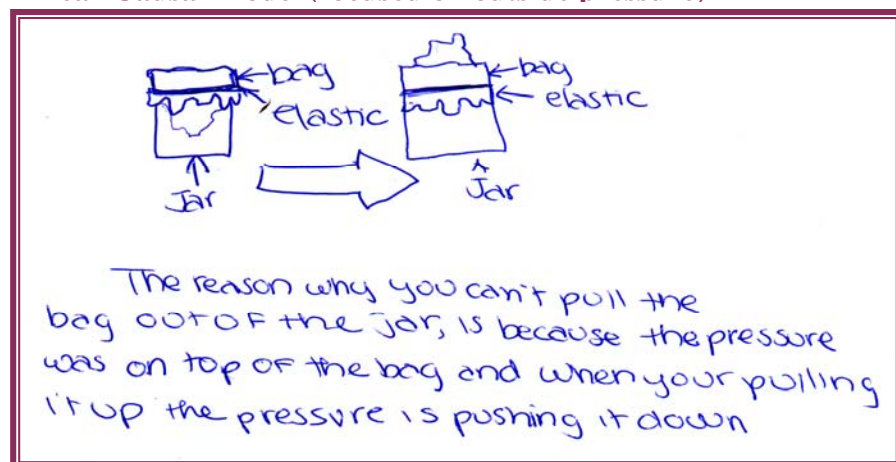 bag
bag
elastic
elastic
Jar
Jar
The reason why you can't pull the
bag out of the jar, is because the pressure
was on top of the bag and when your pulling
it up the pressure is pushing it down